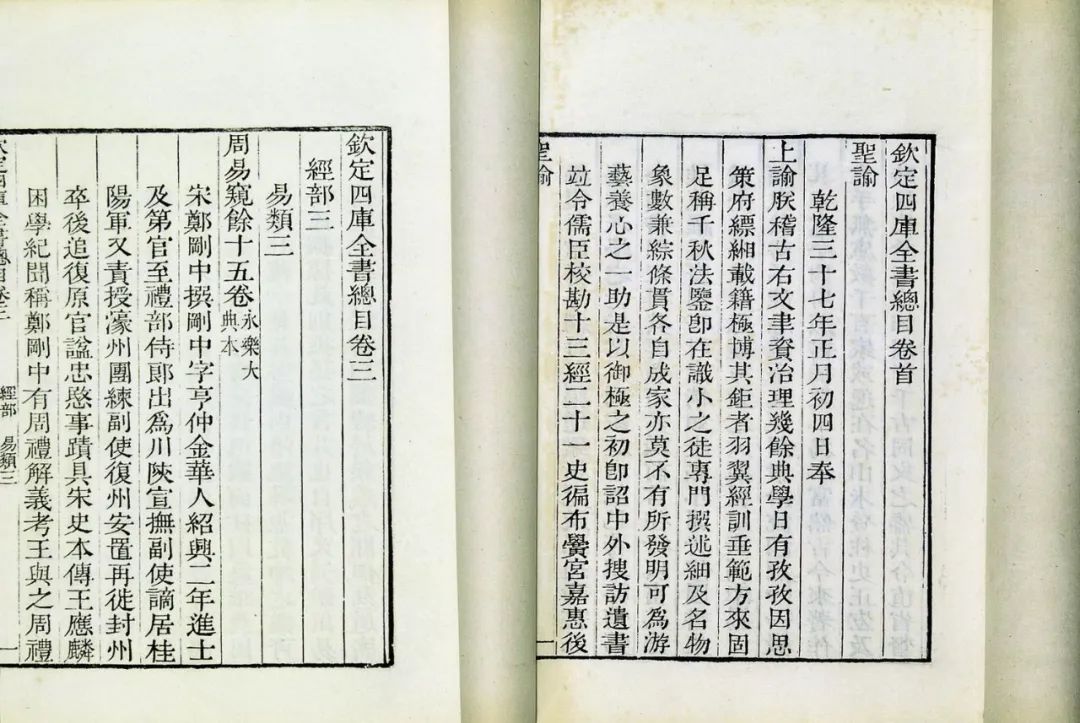 欽定四庫全書總目卷首
聖諭
乾隆三十七年正月初四日奉
上諭朕稽古右文聿資治理幾餘典學日有孜孜因思
策府縹緗載籍極博其鉅者羽翼經訓垂範方來固
足稱千秋法鑒卽在識小之徒專門撰述細及名物
象數兼綜條貫各自成家亦莫不有所發明可為游
藝養心之一助是以御極之初卽詔中外搜訪遺書
竝令儒臣校勘十三經二十一史徧布黌宮嘉惠後
聖諭
一
欽定四庫全書總目卷三
經部三
易類三
周易窺餘十五卷永樂大典本
宋鄭剛中撰剛中字亨仲金華人紹興二年進士
及第官至禮部侍郎出為川陝宣撫副使謫居桂
陽軍又責授濠州團練副使復州安置再徙封州
卒後追復原官諡忠愍事蹟具宋史本傳王應麟
困學紀聞稱鄭剛中有周禮解義考王與之周禮
欽定四庫全書總目卷三 經部 易類三
一